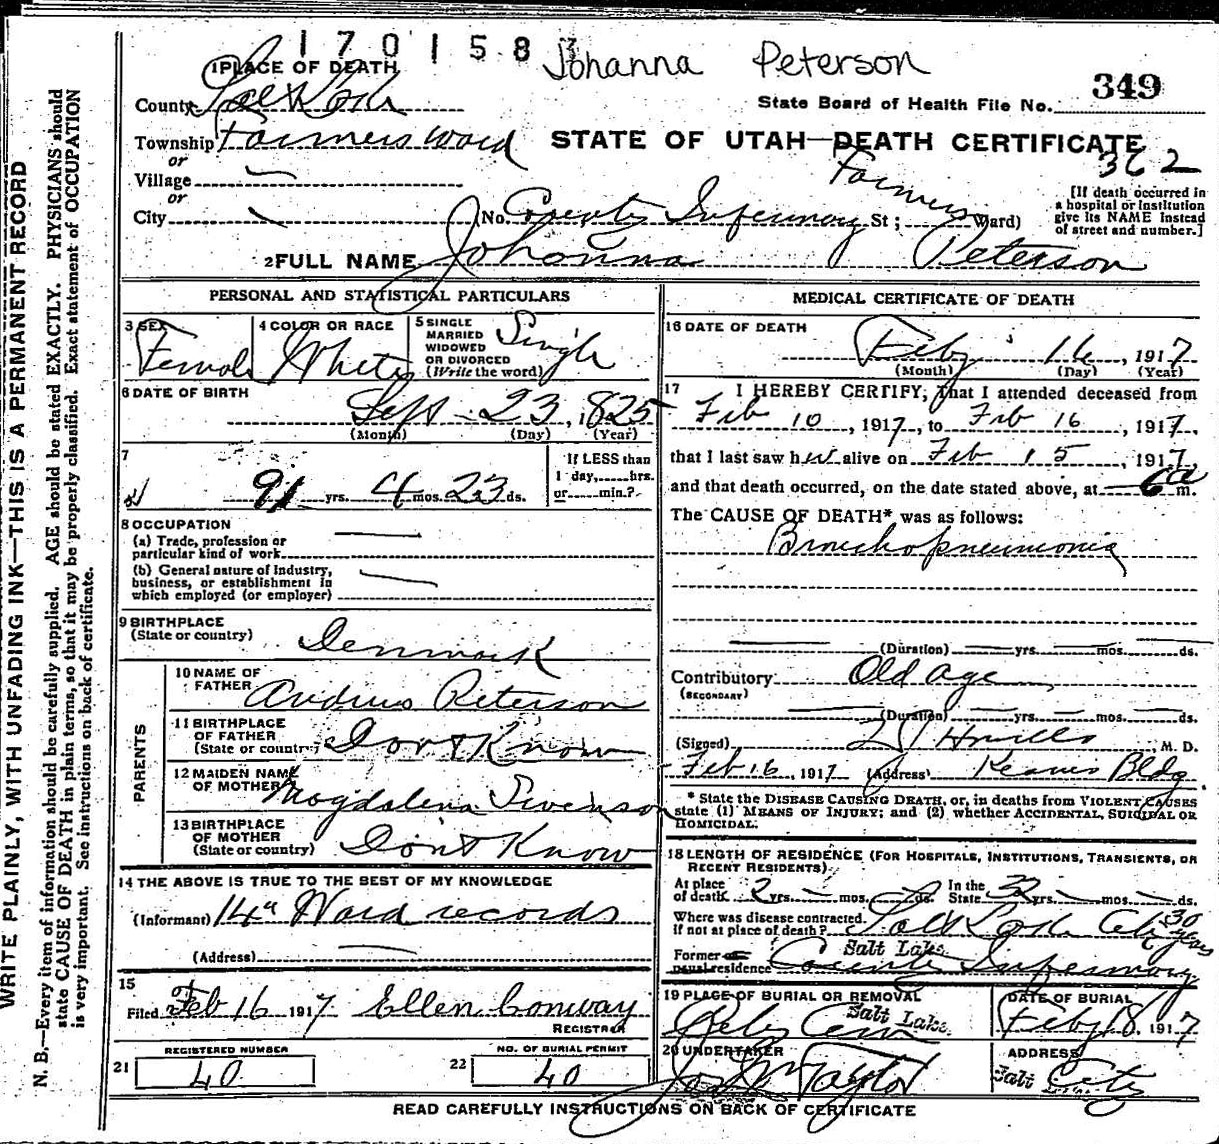 1701583
Johanna Peterson
1 PLACE OF DEATH
349
County Salt Lake
State Board of Health File No.
Township Farmers Ward
STATE OF UTAH—DEATH CERTIFICATE
or
362
Village
or
City
(No. County Infirmary St; Farmers Ward)
[If death occurred in
a hospital or institution
give its NAME instead
of street and number.]
2 FULL NAME Johanna Peterson
PERSONAL AND STATISTICAL PARTICULARS
3 SEX
Female
4 COLOR OR RACE
White
5 SINGLE
MARRIED
WIDOWED
OR DIVORCED
(Write the word)
Single
6 DATE OF BIRTH
Sept 23, 1825
(Month) (Day) (Year)
7
91 yrs. 4 mos. 23 ds.
If LESS than
1 day,......hrs.
or......min.?
8 OCCUPATION
(a) Trade, profession or
particular kind of work
(b) General nature of industry,
business, or establishment in
which employed (or employer)
9 BIRTHPLACE
(State or country)
Denmark
PARENTS
10 NAME OF
FATHER
Andrus Peterson
11 BIRTHPLACE
OF FATHER
(State or country)
Don't Know
12 MAIDEN NAME
OF MOTHER
Magdalena Swenson
13 BIRTHPLACE
OF MOTHER
(State or country)
Don't Know
14 THE ABOVE IS TRUE TO THE BEST OF MY KNOWLEDGE
(Informant) 14" Ward records
(Address)
15
Filed Feb 16 1917 Ellen Conway
REGISTRAR
21
REGISTERED NUMBER
40
22
NO. OF BURIAL PERMIT
40
MEDICAL CERTIFICATE OF DEATH
16 DATE OF DEATH
Feby 16, 1917
(Month) (Day) (Year)
17 I HEREBY CERTIFY, That I attended deceased from
Feb 10, 1917, to Feb 16, 1917,
that I last saw her alive on Feb 15, 1917,
and that death occurred, on the date stated above, at 6 a m.
The CAUSE OF DEATH* was as follows:
Bronchopneumonia
(Duration) yrs. mos. ds.
Contributory Old Age
(SECONDARY)
(Duration) yrs. mos. ds.
(Signed) M. D.
Feb 16, 1917 (Address) Kearns Bldg
* State the DISEASE CAUSING DEATH, or, in deaths from VIOLENT CAUSES
state (1) MEANS OF INJURY; and (2) whether ACCIDENTAL, SUICIDAL OR
HOMICIDAL.
18 LENGTH OF RESIDENCE (FOR HOSPITALS, INSTITUTIONS, TRANSIENTS, OR
RECENT RESIDENTS)
At place
of death 2 yrs. mos. ds.
In the
State 32 yrs. mos. ds.
Where was disease contracted.
If not at place of death? Salt Lake City 30 years
Former or
usual residence Salt Lake County Infirmary
19 PLACE OF BURIAL OR REMOVAL
Salt Lake
City Cem
DATE OF BURIAL
Feby 18, 1917
20 UNDERTAKER
Jos Wm Taylor
ADDRESS
Salt Lake City
READ CAREFULLY INSTRUCTIONS ON BACK OF CERTIFICATE
WRITE PLAINLY, WITH UNFADING INK—THIS IS A PERMANENT RECORD
N. B.—Every item of information should be carefully supplied. AGE should be stated EXACTLY. PHYSICIANS should
state CAUSE OF DEATH in plain terms, so that it may be properly classified. Exact statement of OCCUPATION
is very important. See instructions on back of certificate.